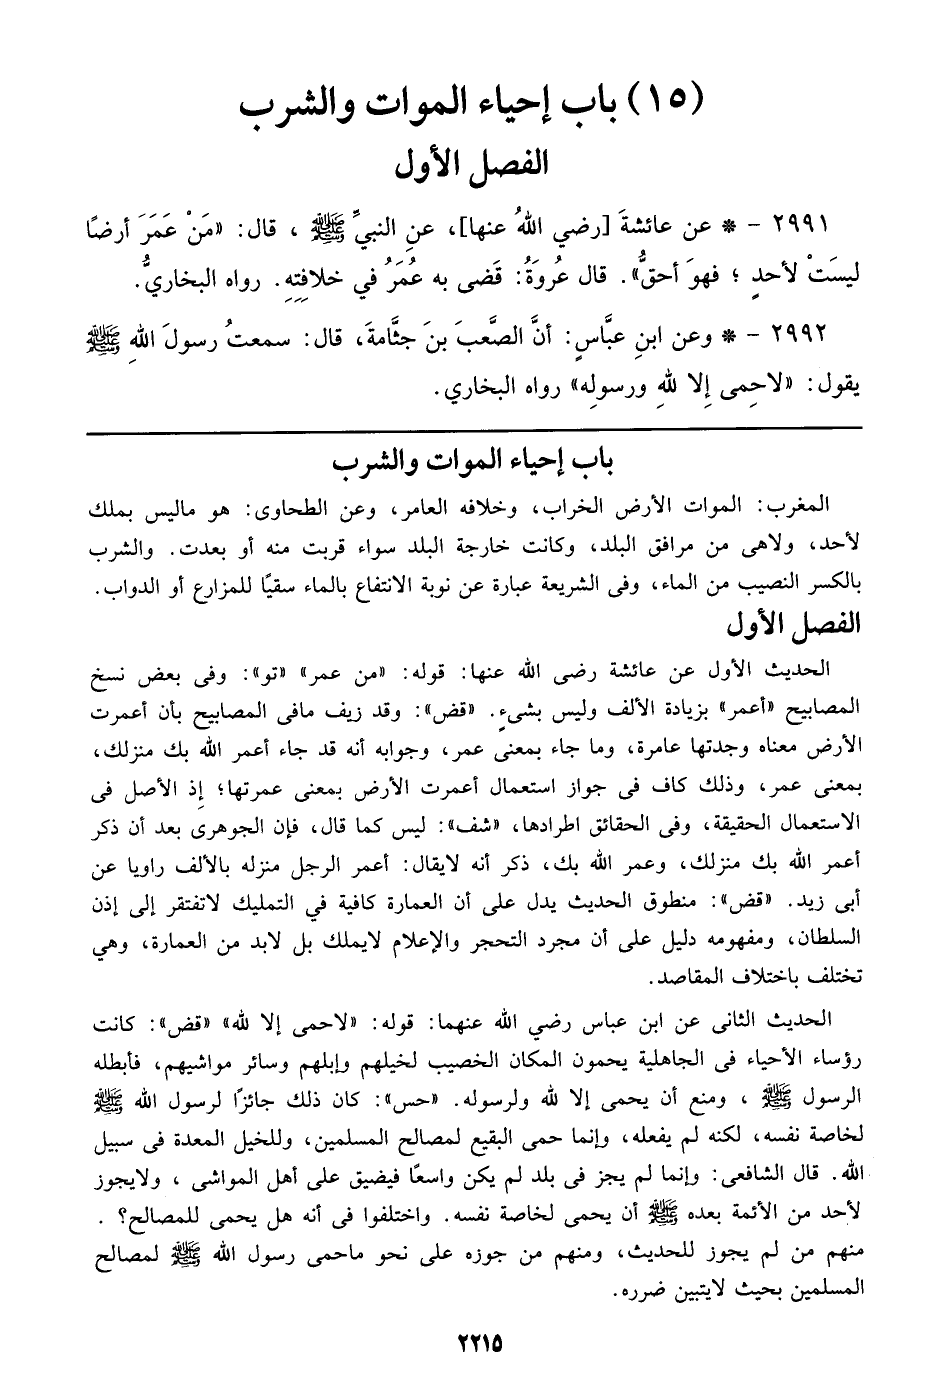 (١٥) باب إحياء الموات والشرب
الفصل الأول
٢٩٩١ - * عن عائشةَ [رضي اللهُ عنها]، عنِ النبيِّ ﷺ ، قال: «مَنْ عَمَرَ أرضًا
ليسَتْ لأحدٍ ؛ فهوَ أحقُّ». قال عُروَةُ: قَضى به عُمَرُ في خلافتِهِ. رواه البخاريُّ.
٢٩٩٢ - * وعن ابنِ عبَّاسٍ: أنَّ الصَّعبَ بنَ جثَّامةَ، قال: سمعتُ رسولَ اللهِ ﷺ
يقول: «لاحِمى إِلا للهِ ورسولِه» رواه البخاري.
باب إحياء الموات والشرب
المغرب: الموات الأرض الخراب، وخلافه العامر، وعن الطحاوى: هو ماليس بملك
لأحد، ولاهى من مرافق البلد، وكانت خارجة البلد سواء قربت منه أو بعدت. والشرب
بالكسر النصيب من الماء، وفى الشريعة عبارة عن نوبة الانتفاع بالماء سقيًا للمزارع أو الدواب.
الفصل الأول
الحديث الأول عن عائشة رضى الله عنها: قوله: «من عمر» «تو»: وفى بعض نسخ
المصابيح «أعمر» بزيادة الألف وليس بشىءٍ. «قض»: وقد زيف مافى المصابيح بأن أعمرت
الأرض معناه وجدتها عامرة، وما جاء بمعنى عمر، وجوابه أنه قد جاء أعمر الله بك منزلك،
بمعنى عمر، وذلك كاف فى جواز استعمال أعمرت الأرض بمعنى عمرتها؛ إِذ الأصل فى
الاستعمال الحقيقة، وفى الحقائق اطرادها، «شف»: ليس كما قال، فإن الجوهرى بعد أن ذكر
أعمر الله بك منزلك، وعمر الله بك، ذكر أنه لايقال: أعمر الرجل منزله بالألف راويا عن
أبى زيد. «قض»: منطوق الحديث يدل على أن العمارة كافية في التمليك لاتفتقر إلى إذن
السلطان، ومفهومه دليل على أن مجرد التحجر والإعلام لايملك بل لابد من العمارة، وهي
تختلف باختلاف المقاصد.
الحديث الثانى عن ابن عباس رضي الله عنهما: قوله: «لاحمى إلا لله» «قض»: كانت
رؤساء الأحياء فى الجاهلية يحمون المكان الخصيب لخيلهم وإبلهم وسائر مواشيهم، فأبطله
الرسول ﷺ ، ومنع أن يحمى إلا لله ولرسوله. «حس»: كان ذلك جائزًا لرسول الله ﷺ
لخاصة نفسه، لكنه لم يفعله، وإنما حمى البقيع لمصالح المسلمين، وللخيل المعدة فى سبيل
الله. قال الشافعى: وإنما لم يجز فى بلد لم يكن واسعًا فيضيق على أهل المواشى ، ولايجوز
لأحد من الأئمة بعده ﷺ أن يحمى لخاصة نفسه. واختلفوا فى أنه هل يحمى للمصالح؟ .
منهم من لم يجوز للحديث، ومنهم من جوزه على نحو ماحمى رسول الله ﷺ لمصالح
المسلمين بحيث لايتبين ضرره.
٢٢١٥